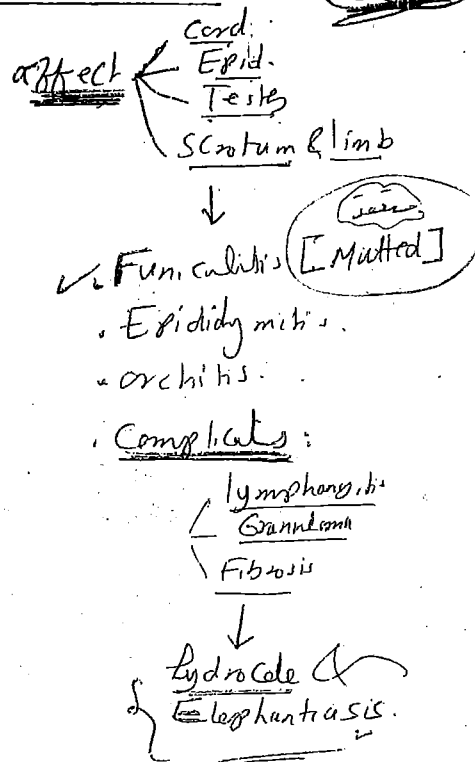 affect
Cord.
Epid.
Testes
Scrotum & limb
Funiculitis [Matted]
Epididymitis.
orchitis.
Complicats :
lymphangitis
Granuloma
Fibrosis
hydrocele &
Elephantiasis.